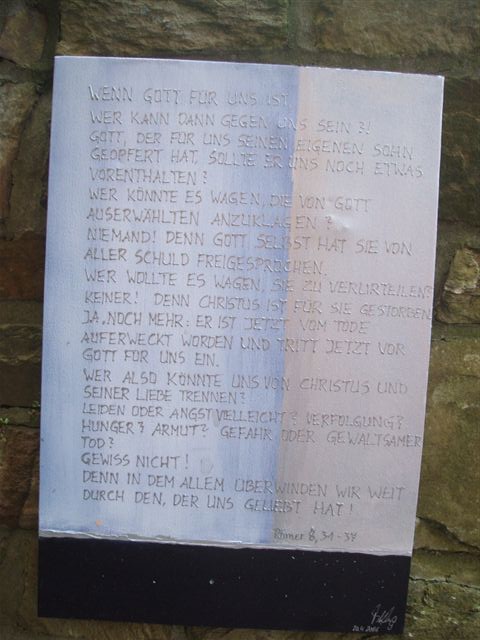 WENN GOTT FÜR UNS IST,
WER KANN DANN GEGEN UNS SEIN ?!
GOTT, DER FÜR UNS SEINEN EIGENEN SOHN
GEOPFERT HAT, SOLLTE ER UNS NOCH ETWAS
VORENTHALTEN ?
WER KÖNNTE ES WAGEN, DIE VON GOTT
AUSERWÄHLTEN ANZUKLAGEN ?
NIEMAND! DENN GOTT SELBST HAT SIE VON
ALLER SCHULD FREIGESPROCHEN.
WER WOLLTE ES WAGEN, SIE ZU VERURTEILEN?
KEINER! DENN CHRISTUS IST FÜR SIE GESTORBEN,
JA, NOCH MEHR: ER IST JETZT VOM TODE
AUFERWECKT WORDEN UND TRITT JETZT VOR
GOTT FÜR UNS EIN.
WER ALSO KÖNNTE UNS VON CHRISTUS UND
SEINER LIEBE TRENNEN?
LEIDEN ODER ANGST VIELLEICHT? VERFOLGUNG?
HUNGER? ARMUT? GEFAHR ODER GEWALTSAMER
TOD?
GEWISS NICHT!
DENN IN DEM ALLEM ÜBERWINDEN WIR WEIT
DURCH DEN, DER UNS GELIEBT HAT!
Römer 8, 31-37